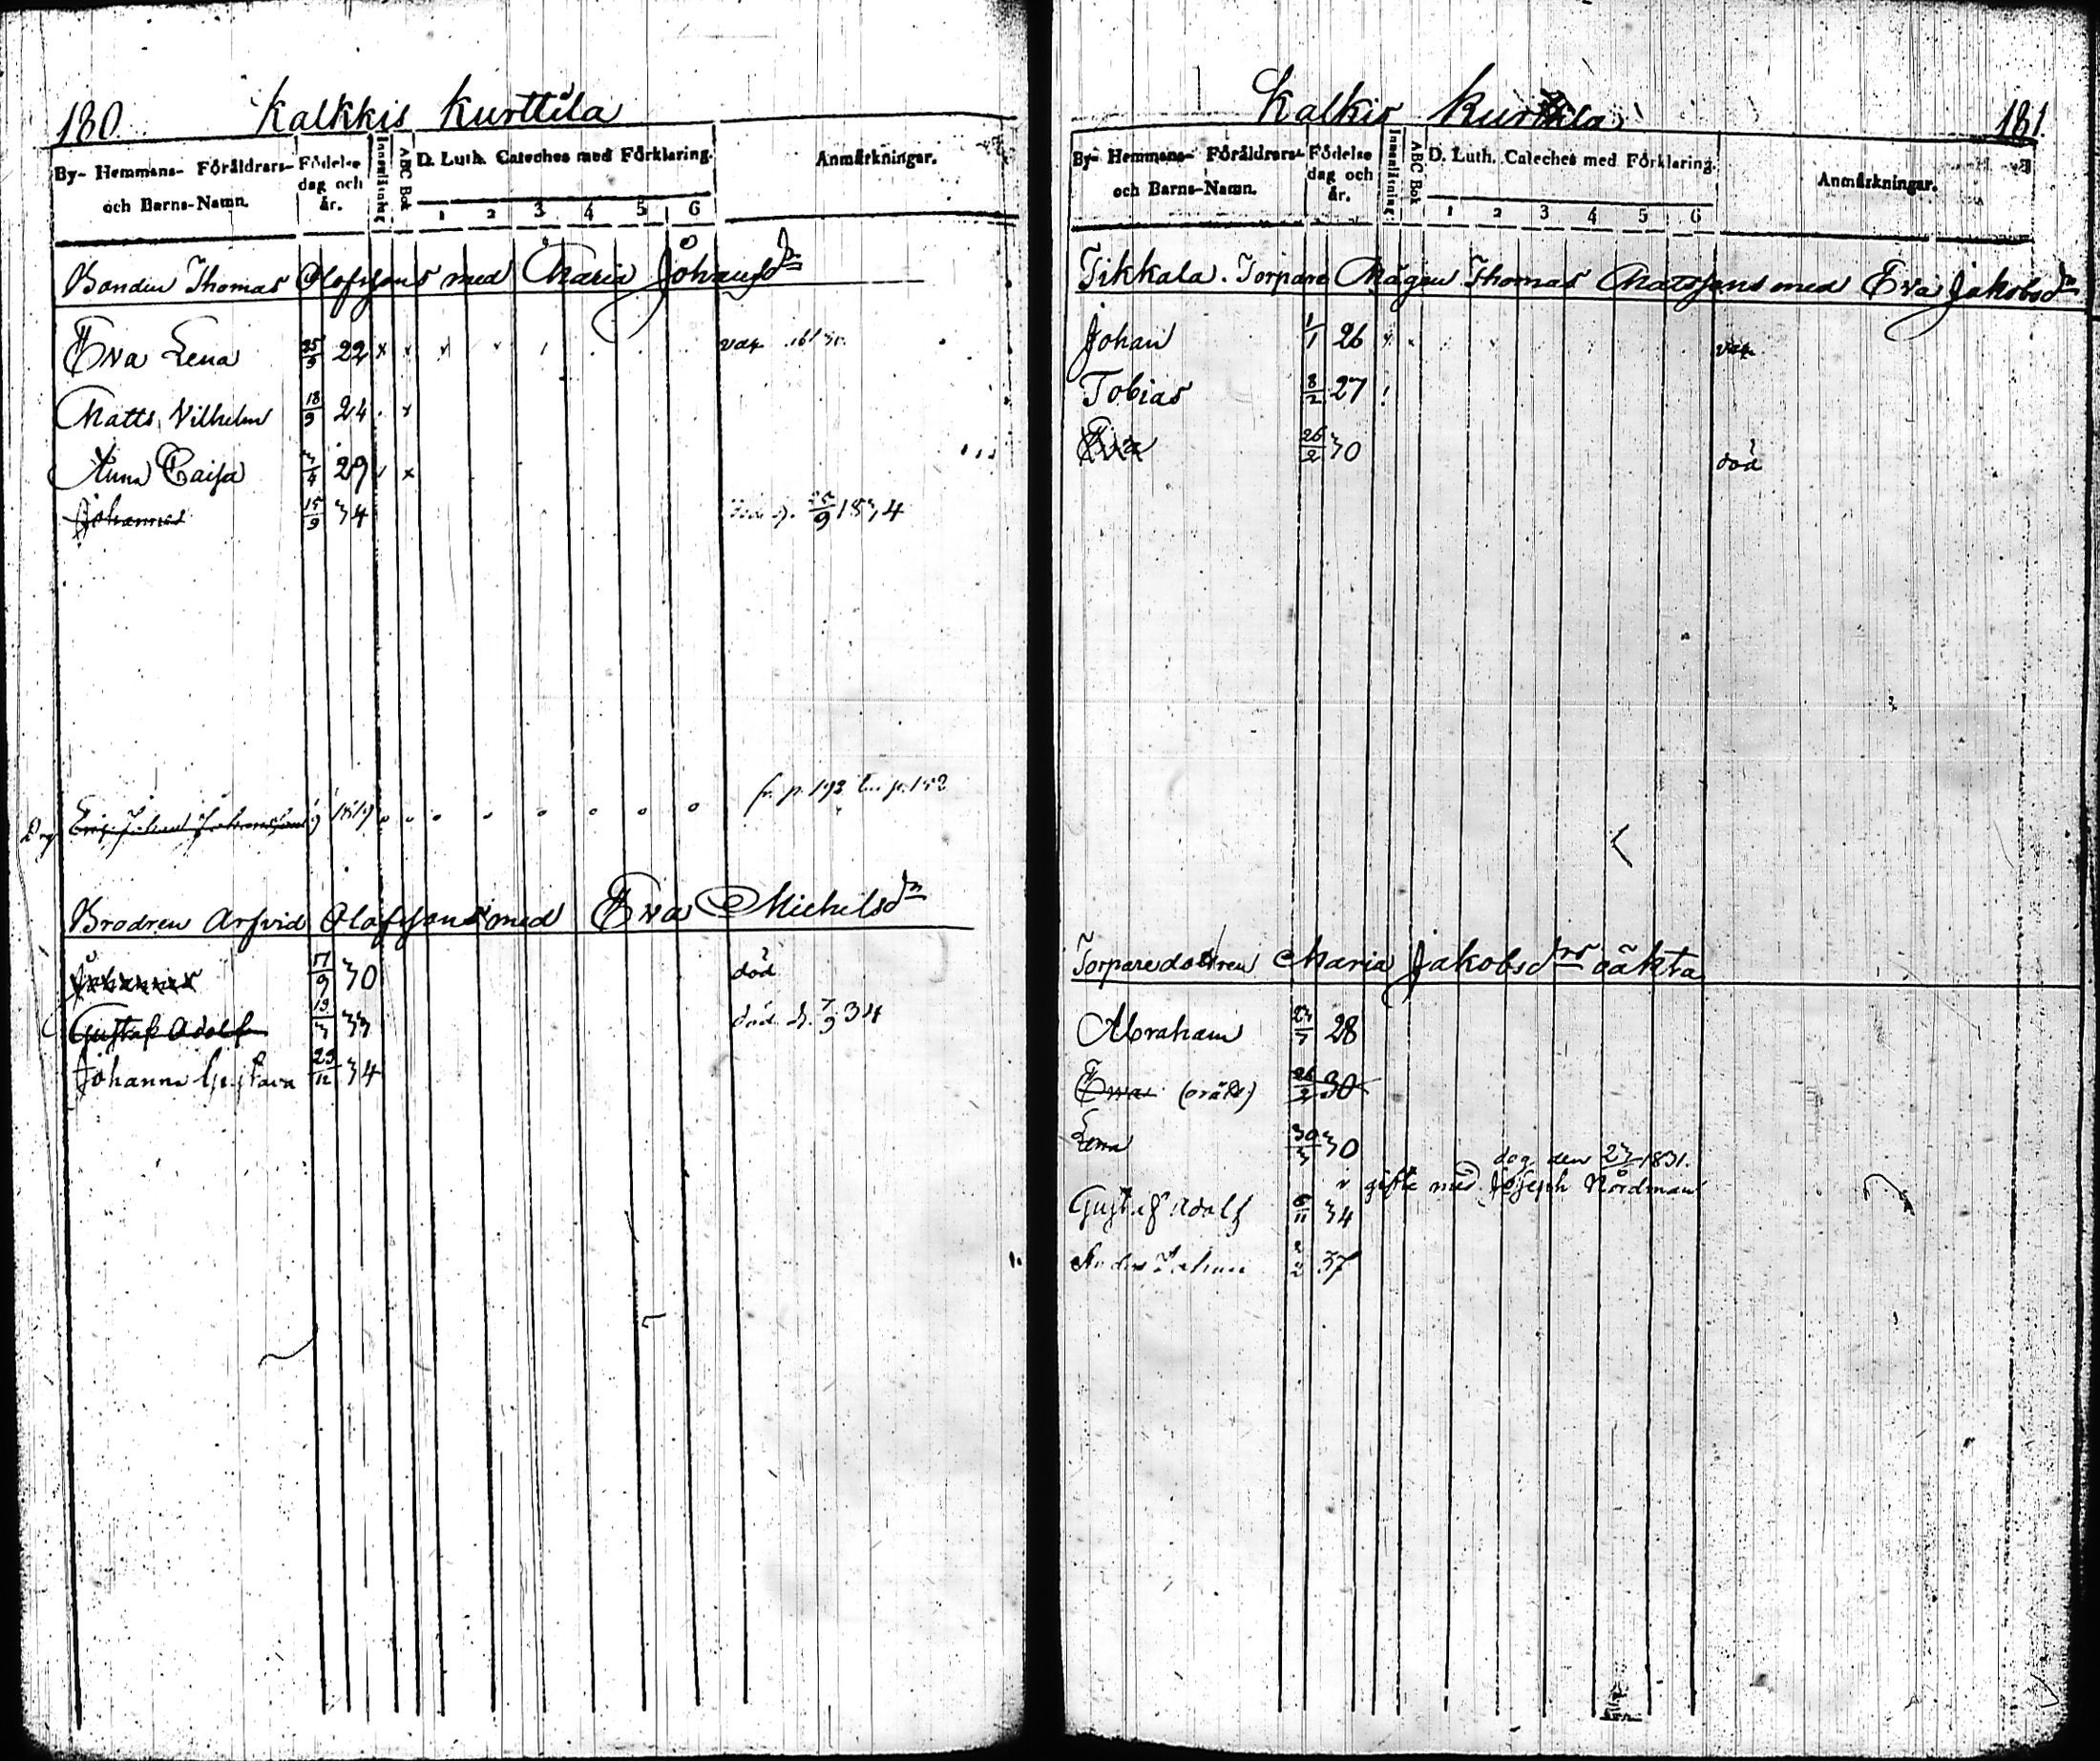 180. Kalkkis Kurttila
By- Hemmans- Föräldrars- och Barns-Namn. Födelse dag och år. Innanläsning ABC Bok D. Luth. Cateches med Förklaring. 1 2 3 4 5 6 Anmärkningar.
Bonden Thomas Olofssons med Maria Johansdr
Eva Lena 25/3 22 x x x x vac.
Matts Vilhelm 18/9 24 x
Anna Caisa 3/4 29 x
Johannes 15/9 34 död d. 25/9 1834
Drg Johan 1819 fr. p. 192
Brodren Arfvid Olofssons med Eva Michelsdr
Johannes 30 död
Gustaf Adolf 19/3 33 död d. 7/9 34
Johanna Gustava 29/12 34
Kalkis Kurttila 181.
By- Hemmans- Föräldrars- och Barns-Namn. Födelse dag och år. Innanläsning ABC Bok D. Luth. Cateches med Förklaring. 1 2 3 4 5 6 Anmärkningar.
Tikkala. Torpare Mågen Thomas Matssons med Eva Jakobsdr
Johan 1/1 26 vac.
Tobias 8/2 27
Eva 26/2 30 död
Torpare dottren Maria Jakobsdrs oäkta
Abraham 23/3 28
Ewa (oäkt) 26/2 30
Lena 30/3 30
dog den 23 1831.
gifte med Joseph Nordman
Gustaf Adolf 6/11 34
Anders Johan 2/2 37